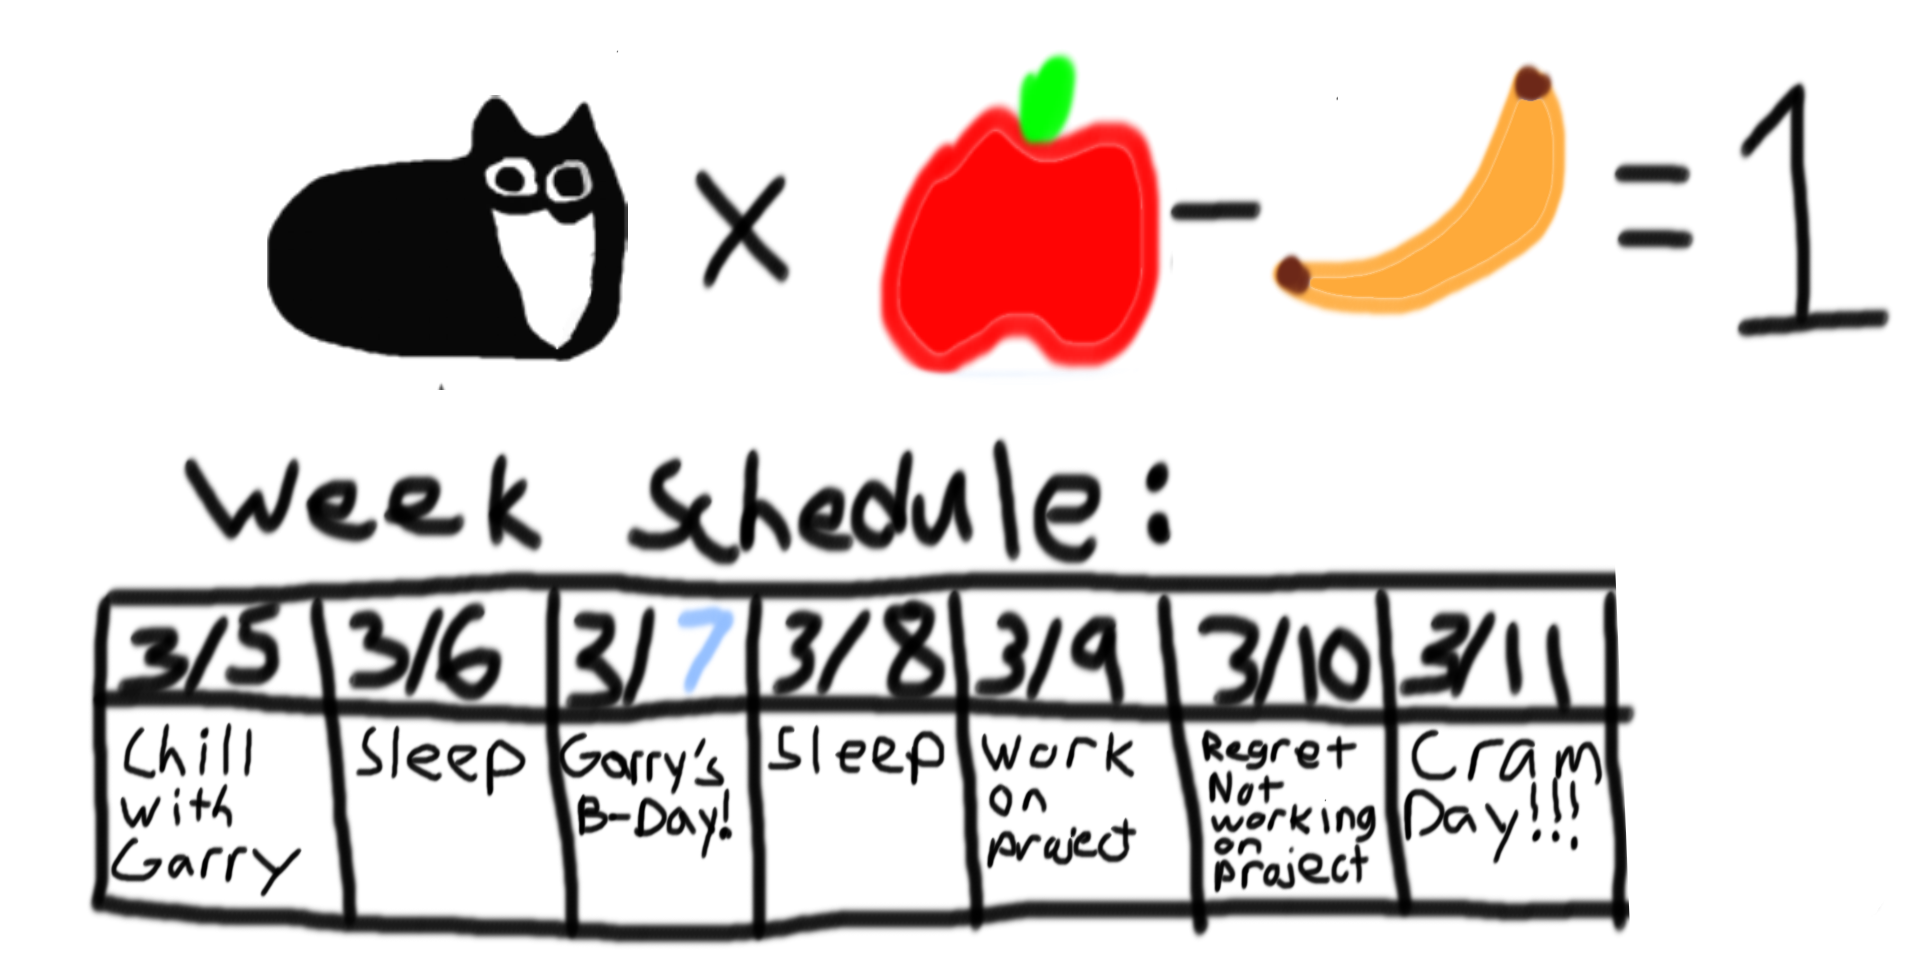 x - = 1
Week Schedule:
3/5 3/6 3/7 3/8 3/9 3/10 3/11
Chill
with
Garry
Sleep
Garry's
B-Day!
Sleep
Work
on
project
Regret
Not
working
on
project
Cram
Day!!!